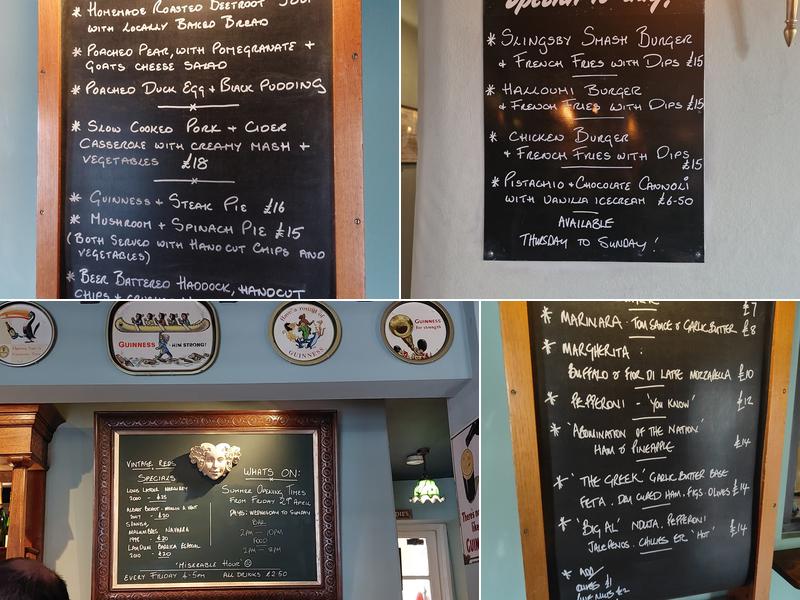 * HOMEMADE ROASTED BEETROOT SOUP
WITH LOCALLY BAKED BREAD
* POACHED PEAR, WITH POMEGRANATE +
GOATS CHEESE SALAD
* POACHED DUCK EGG + BLACK PUDDING
* SLOW COOKED PORK + CIDER
CASSEROLE WITH CREAMY MASH +
VEGETABLES £18
* GUINNESS + STEAK PIE £16
* MUSHROOM + SPINACH PIE £15
(BOTH SERVED WITH HAND CUT CHIPS AND
VEGETABLES)
* BEER BATTERED HADDOCK, HANDCUT
CHIPS +
* SLINGSBY SMASH BURGER
+ FRENCH FRIES WITH DIPS £15
* HALLOUMI BURGER
+ FRENCH FRIES WITH DIPS £15
* CHICKEN BURGER
+ FRENCH FRIES WITH DIPS
£15
* PISTACHIO + CHOCOLATE CANNOLI
WITH VANILLA ICECREAM £6-50
AVAILABLE
THURSDAY TO SUNDAY!
GUINNESS HIM STRONG!
GUINNESS
GUINNESS
for strength
VINTAGE REDS
SPECIALS
LOUIS LATOUR
2000 - £25
2007 - £20
MALUMBRES NAVARRA
1998 - £20
ESPECIAL
2010 - £20
WHATS ON:
SUMMER OPENING TIMES
FROM FRIDAY 29th APRIL
DAYS: WEDNESDAY TO SUNDAY
BAR
2PM - 10PM
FOOD
2PM - 8PM
'MISERABLE HOUR'
EVERY FRIDAY 4-5PM ALL DRINKS £2.50
£7
* MARINARA - TOM SAUCE & GARLIC BUTTER £8
* MARGHERITA :
BUFFALO & FIOR DI LATTE MOZZARELLA £10
* PEPPERONI - 'YOU KNOW' £12
* 'ABOMINATION OF THE NATION'
HAM & PINEAPPLE £14
* 'THE GREEK' GARLIC BUTTER BASE
FETA. DRY CURED HAM. FIGS. OLIVES £14
* 'BIG AL' NDUJA. PEPPERONI
JALEPENOS. CHILLIES ER 'HOT' £14
* ADD
OLIVES £1
£2